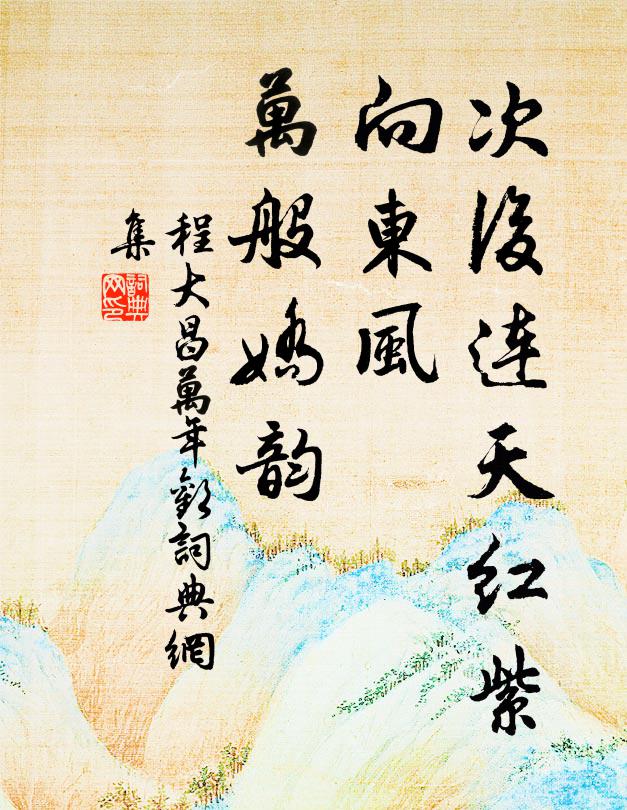 次後連天红紫
向東風
萬般嬌韵
程大昌萬年歡詞典網
集
詞典
网印